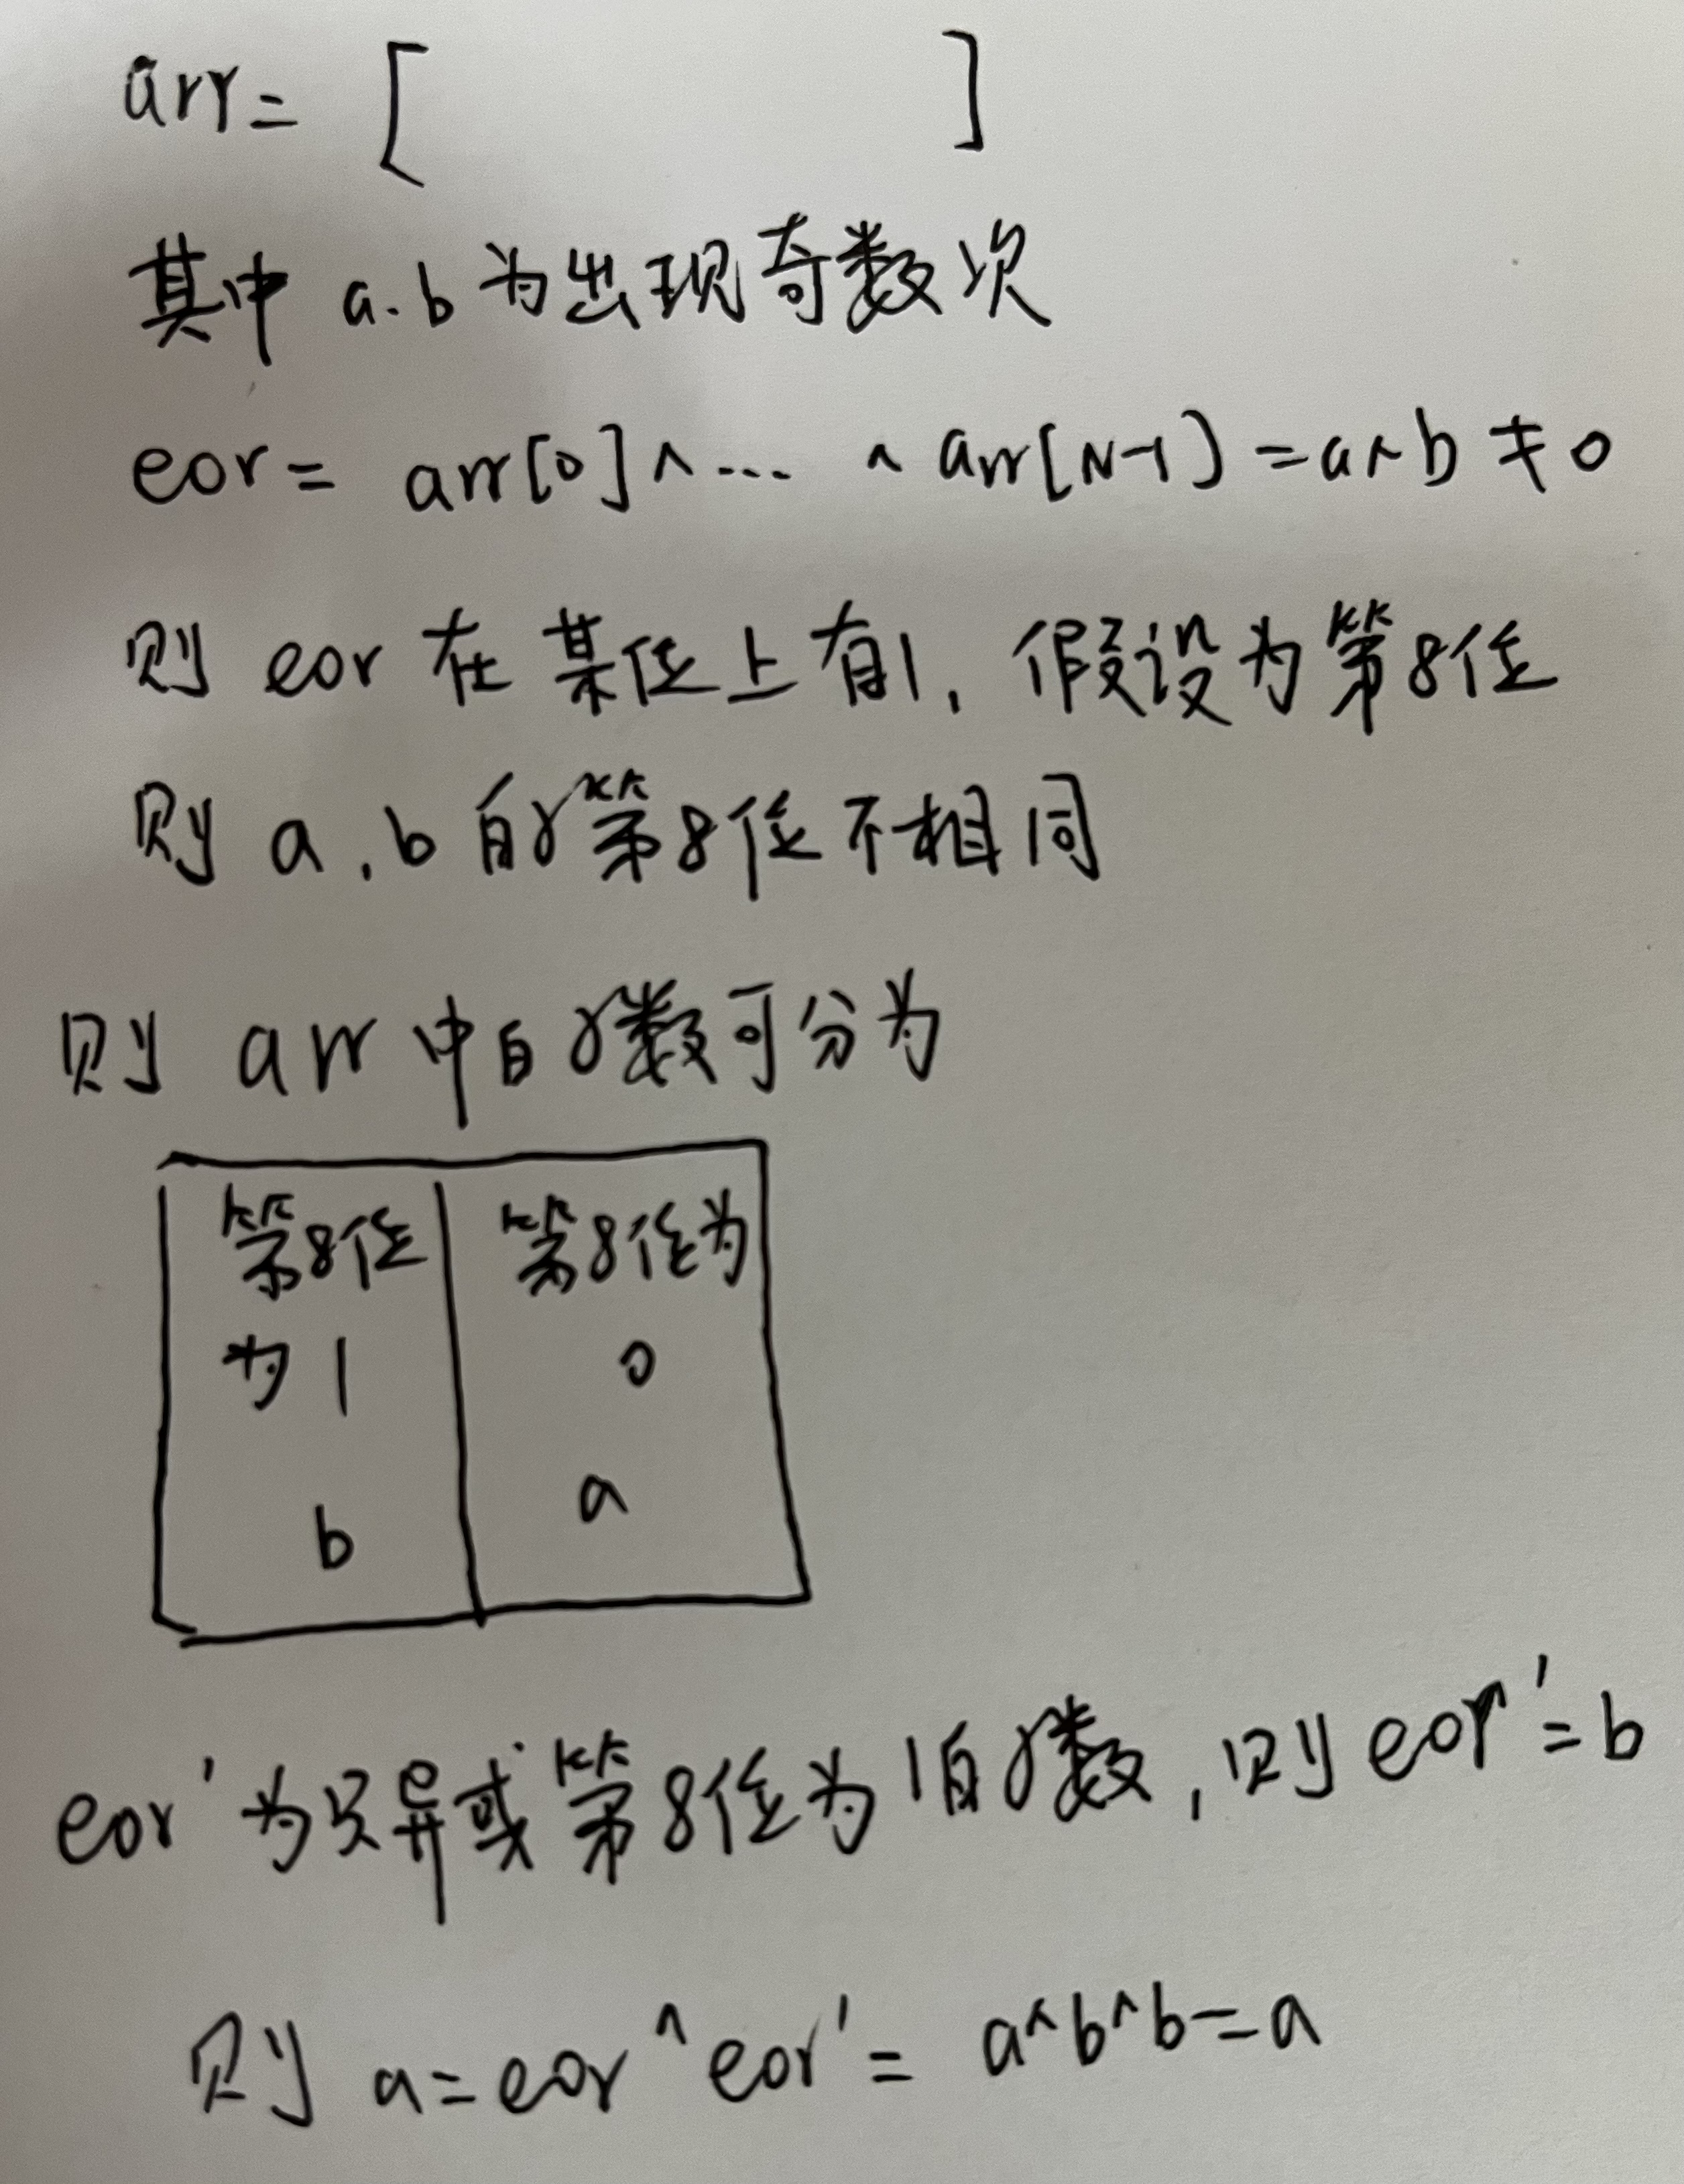 arr= [ ]
其中 a.b 为出现奇数次
eor= arr[0]^... ^ arr[N-1]=a^b≠0
则 eor 在某位上有1, 假设为第8位
则 a,b 的第8位不相同
则 arr 中的数可分为
第8位
为 1
b
第8位为
0
a
eor' 为只异或第8位为1的数, 则 eor'=b
则 a=eor^eor'= a^b^b=a